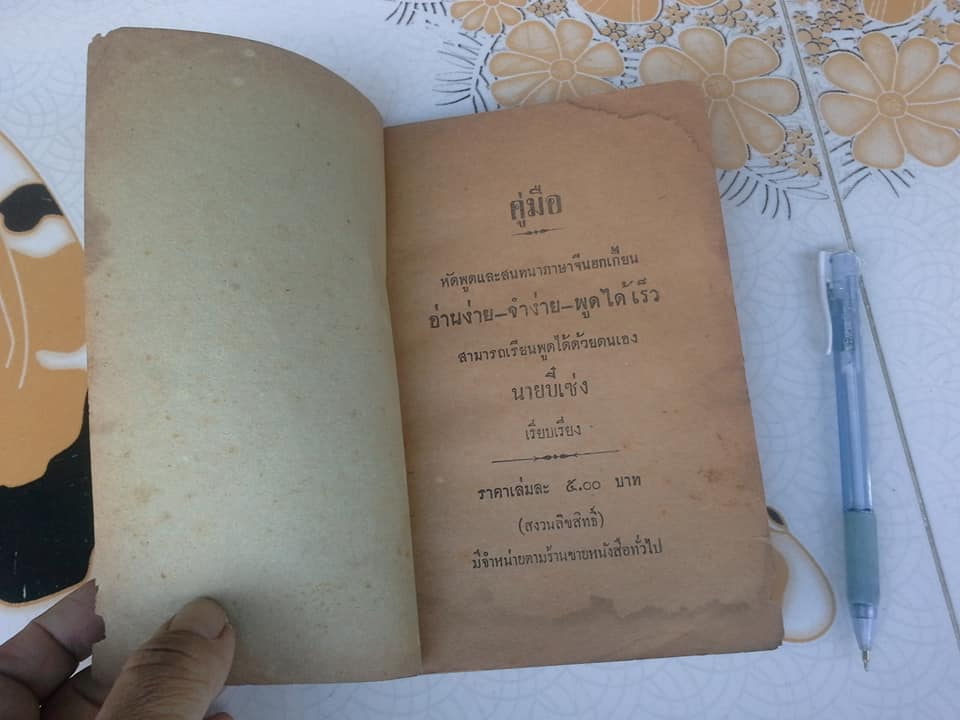 คู่มือ
หัดพูดและสนทนาภาษาจีนฮกเกี้ยน
อ่านง่าย–จำง่าย–พูดได้เร็ว
สามารถเรียนพูดได้ด้วยตนเอง
นายบี้เซ่ง
เรียบเรียง
ราคาเล่มละ ๕.๐๐ บาท
(สงวนลิขสิทธิ์)
มีจำหน่ายตามร้านขายหนังสือทั่วไป